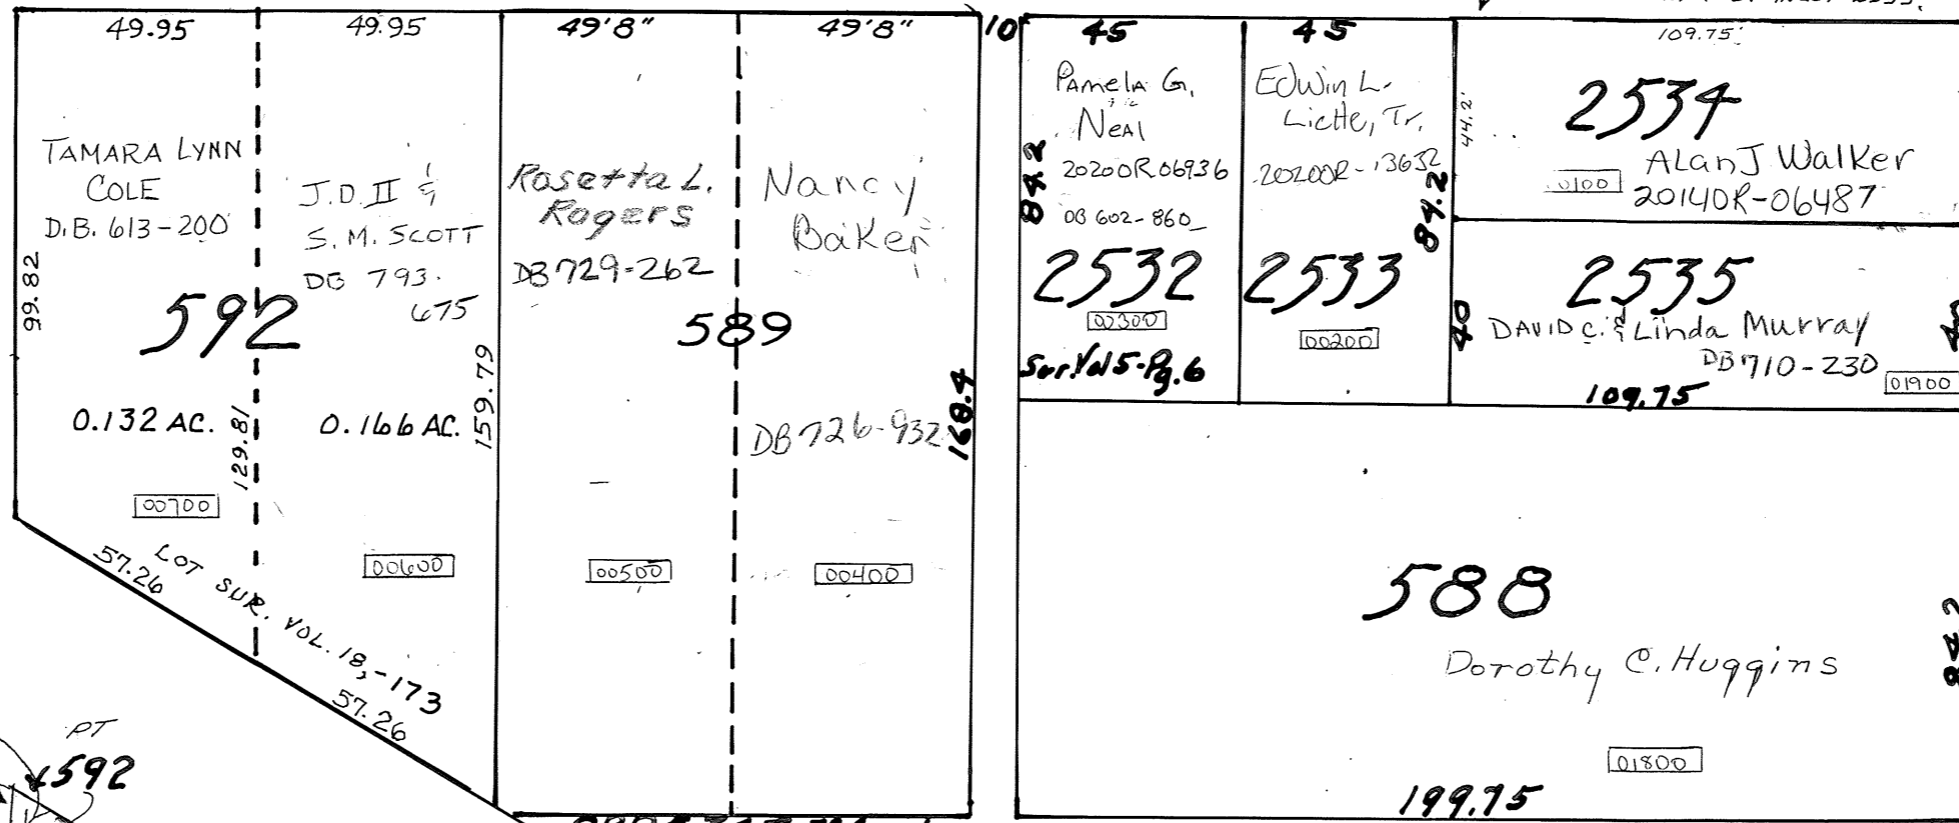 49.95
49.95
49'8"
49'8"
10
45
45
109.75'
TAMARA LYNN
COLE
D.B. 613-200
99.82
592
0.132 AC.
129.81
00700
57.26
J.D. II &
S. M. SCOTT
DB 793-
675
0.166 AC.
159.79
00600
LOT SUR. VOL. 18,-173
57.26
PT
592
Rosetta L.
Rogers
DB 729-262
589
00500
Nancy
Baker
DB 726-932
168.4
00400
Pamela G.
Neal
20200R06936
DB 602-860
84.2
2532
00300
Sur. Vol 5-Pg. 6
Edwin L.
20200R-13632
84.2
2533
00200
44.2'
2534
Alan J Walker
0100
20140R-06487
2535
40
DAVID C. & Linda Murray
DB 710-230
01900
109.75
588
Dorothy C. Huggins
01800
199.75